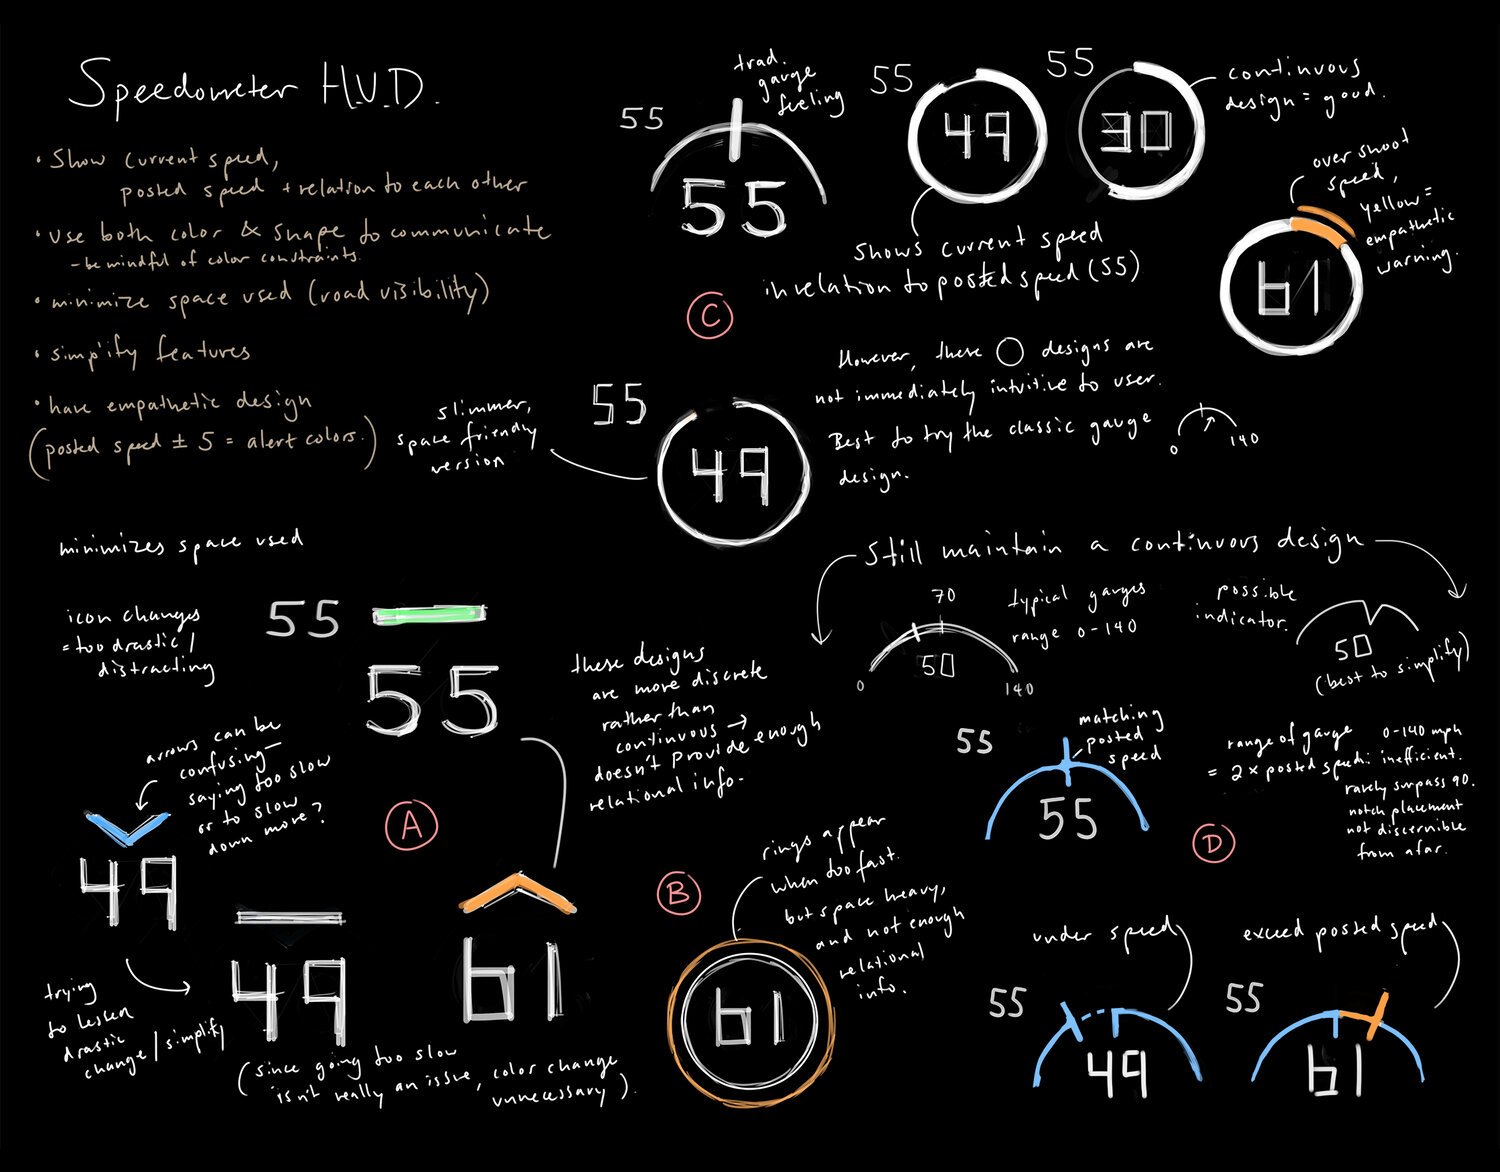 Speedometer H.U.D.
• Show current speed,
posted speed + relation to each other
• use both color & shape to communicate
- be mindful of color constraints.
• minimize space used (road visibility)
• simplify features
• have empathetic design
(posted speed ± 5 = alert colors.)
55
trad.
gauge
feeling
55
55
49
55
30
continuous
design = good.
shows current speed
in relation to posted speed (55)
over shoot
speed,
yellow =
empathetic
warning.
61
C
However, these ○ designs are
not immediately intuitive to user.
Best to try the classic gauge
design.
0
140
slimmer,
space friendly
version
55
49
minimizes space used
icon changes
= too drastic /
distracting
55
55
these designs
are more discrete
rather than
continuous →
doesn't provide enough
relational info.
arrows can be
confusing—
saying too slow
or to slow
down more?
A
49
trying
to lessen
drastic
change / simplify
49
61
(since going too slow
isn't really an issue, color change
unnecessary).
B
rings appear
when too fast.
but space heavy,
and not enough
relational
info.
61
Still maintain a continuous design
70
50
0
140
typical gauges
range 0-140
possible
indicator.
50
(best to simplify)
55
matching
posted
speed
55
range of gauge
= 2 x posted speed
0-140 mph
: inefficient.
rarely surpass 90.
notch placement
not discernible
from afar.
D
under speed
55
49
exceed posted speed
55
61